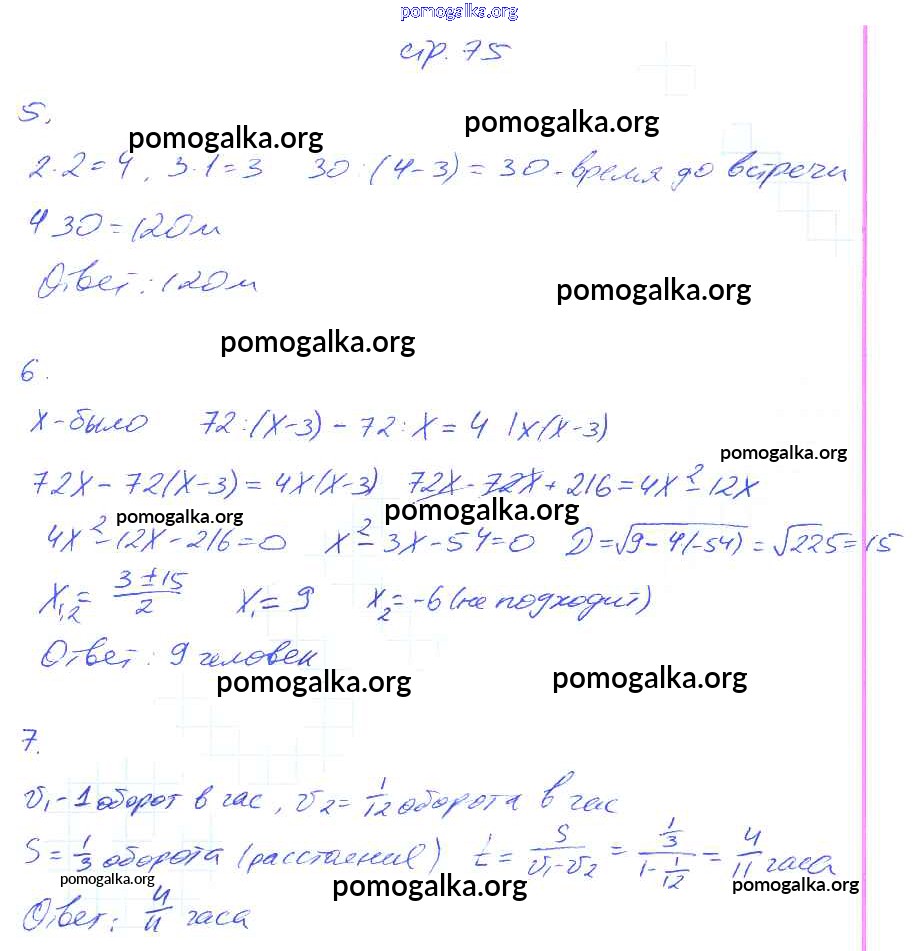 pomogalka.org
стр. 75
5.
pomogalka.org pomogalka.org
2·2=4, 3·1=3 30:(4-3)=30-время до встречи
4 30=120м
Ответ: 120м
pomogalka.org
pomogalka.org
6.
х-было 72:(х-3)-72:х=4 |х(х-3)
pomogalka.org
72х-72(х-3)=4х(х-3) 72х-72х+216=4х²-12х
pomogalka.org pomogalka.org
4х²-12х-216=0 х²-3х-54=0 D=√9-4(-54)=√225=15
х₁,₂=(3±15)/2 х₁=9 х₂=-6(не подходит)
Ответ: 9 человек
pomogalka.org pomogalka.org
7.
v₁-1 оборот в час, v₂=1/12 оборота в час
S=1/3 оборота (расстояние) t=S/(v₁-v₂)=(1/3)/(1-1/12)=4/11 часа
pomogalka.org pomogalka.org pomogalka.org
Ответ: 4/11 часа